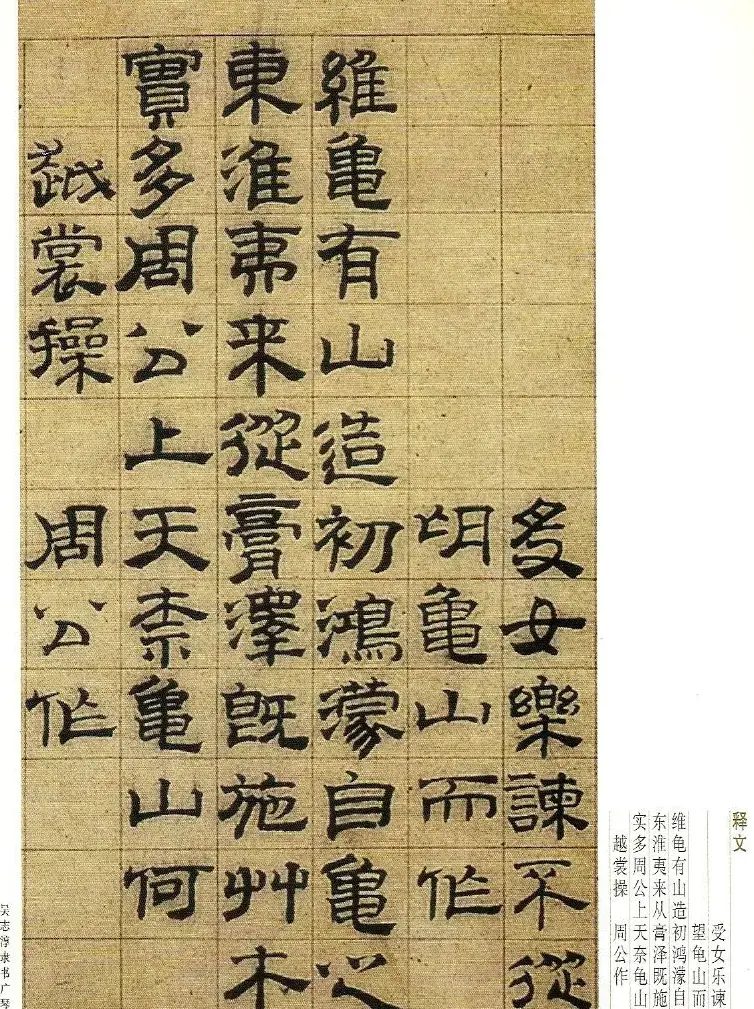 受女樂諫不從
望亀山而作
維亀有山造初鴻濛自亀之
東淮夷来從膏澤既施艸木
實多周公上天柰亀山何
越裳操 周公作
释文
受女乐谏
望龟山而
维龟有山造初鸿濛自
东淮夷来从膏泽既施
实多周公上天奈龟山
越裳操 周公作
吴志淳隶书广琴